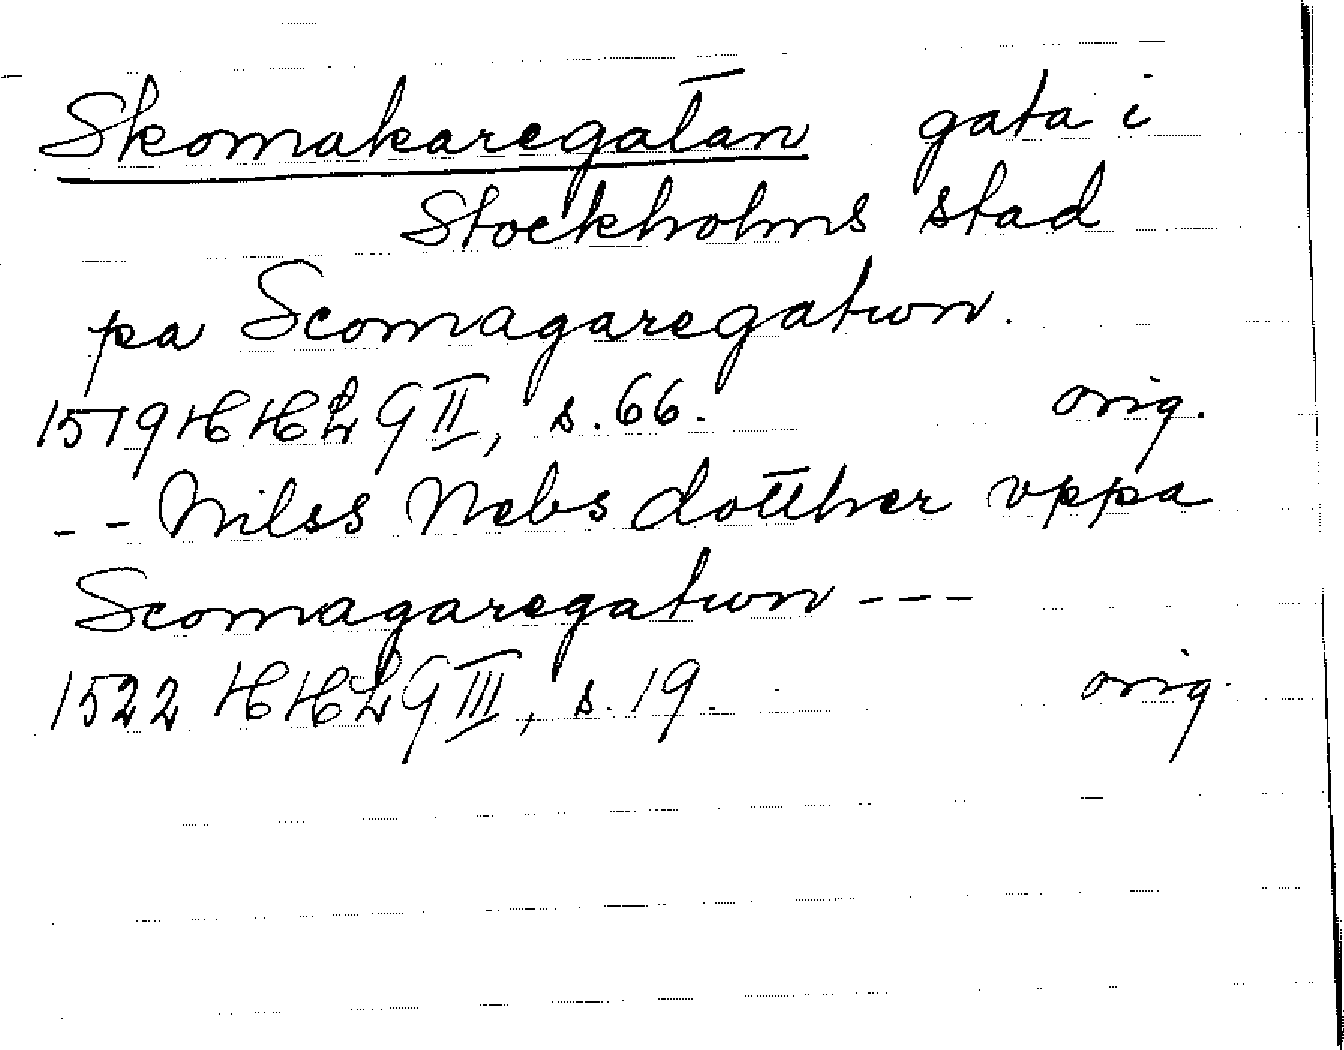 Skomakaregatan gata i
Stockholms stad
pa Scomagaregatwn.
1519 HHLG II, s. 66. orig.
-- Nilss Nebs dotther vppa
Scomagaregatwn ---
1522 HHLG III, s. 19. orig.